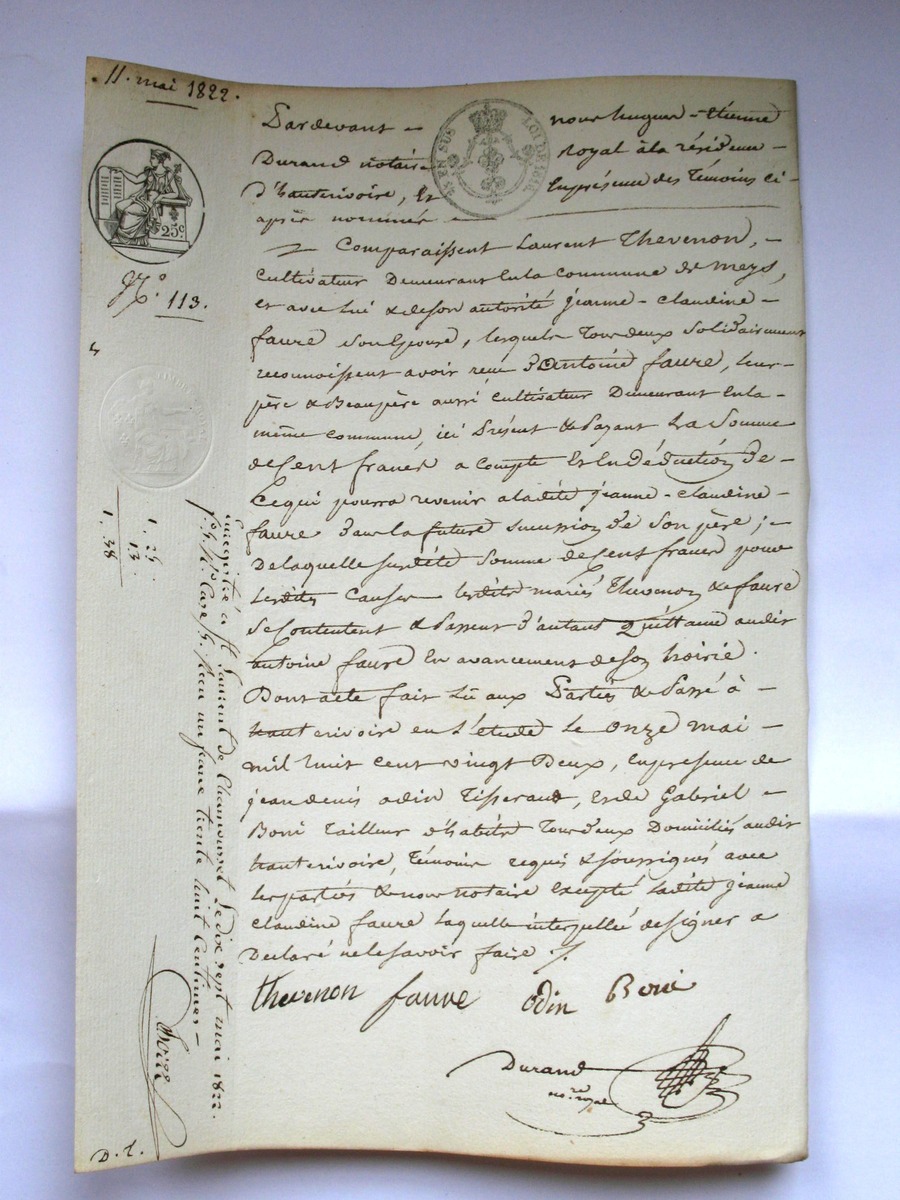 11. mai 1822.
Pardevant nous hugues-Etienne
Durand notaire Royal à la résidence
d'hauterivoire, Et En présence des Témoins ci-
après nommés
EN SUS LOI DE 1816.
25c.
No. 113.
Comparaissent Laurent Thevenon,
Cultivateur Demeurant En la Commune de Meys,
et avec lui & de son autorité jeanne-claudine
faure son Epouse, lesquels Tous deux solidairement
reconnoissent avoir reçu d'antoine faure, leur
père & Beaupère aussi Cultivateur Demeurant En la
même commune, ici Présent & Payant La Somme
de Cent francs a compte Et En Déduction De
Ce qui pourra revenir a ladite jeanne-claudine
faure dans la future succession de son père ;
De laquelle susdite Somme de Cent francs pour
Lesdites Causes lesdits mariés Thevenon & faure
Se Contentent & Passent d'autant Quittance audit
antoine faure En avancement de son hoirie.
Dont acte fait Lu aux Parties & Passé à
hauterivoire en L'étude Le onze mai
mil huit cent vingt Deux, En presence de
jean denis odin Tisserand, Et de Gabriel
Boni Tailleur d'habits Tous deux Domiciliés audit
hauterivoire, Témoins requis & soussignés avec
les parties & nous notaire Excepté Ladite jeanne
Claudine faure laquelle interpellée de signer a
Déclaré ne le savoir faire /.
thevenon faure odin Boni
Durand
no.re royal
1, 25
13
1, 38
Enregistré à St Laurent de Chamousset Le dix sept mai 1822.
Reçu un franc trente huit Centimes
D. T.